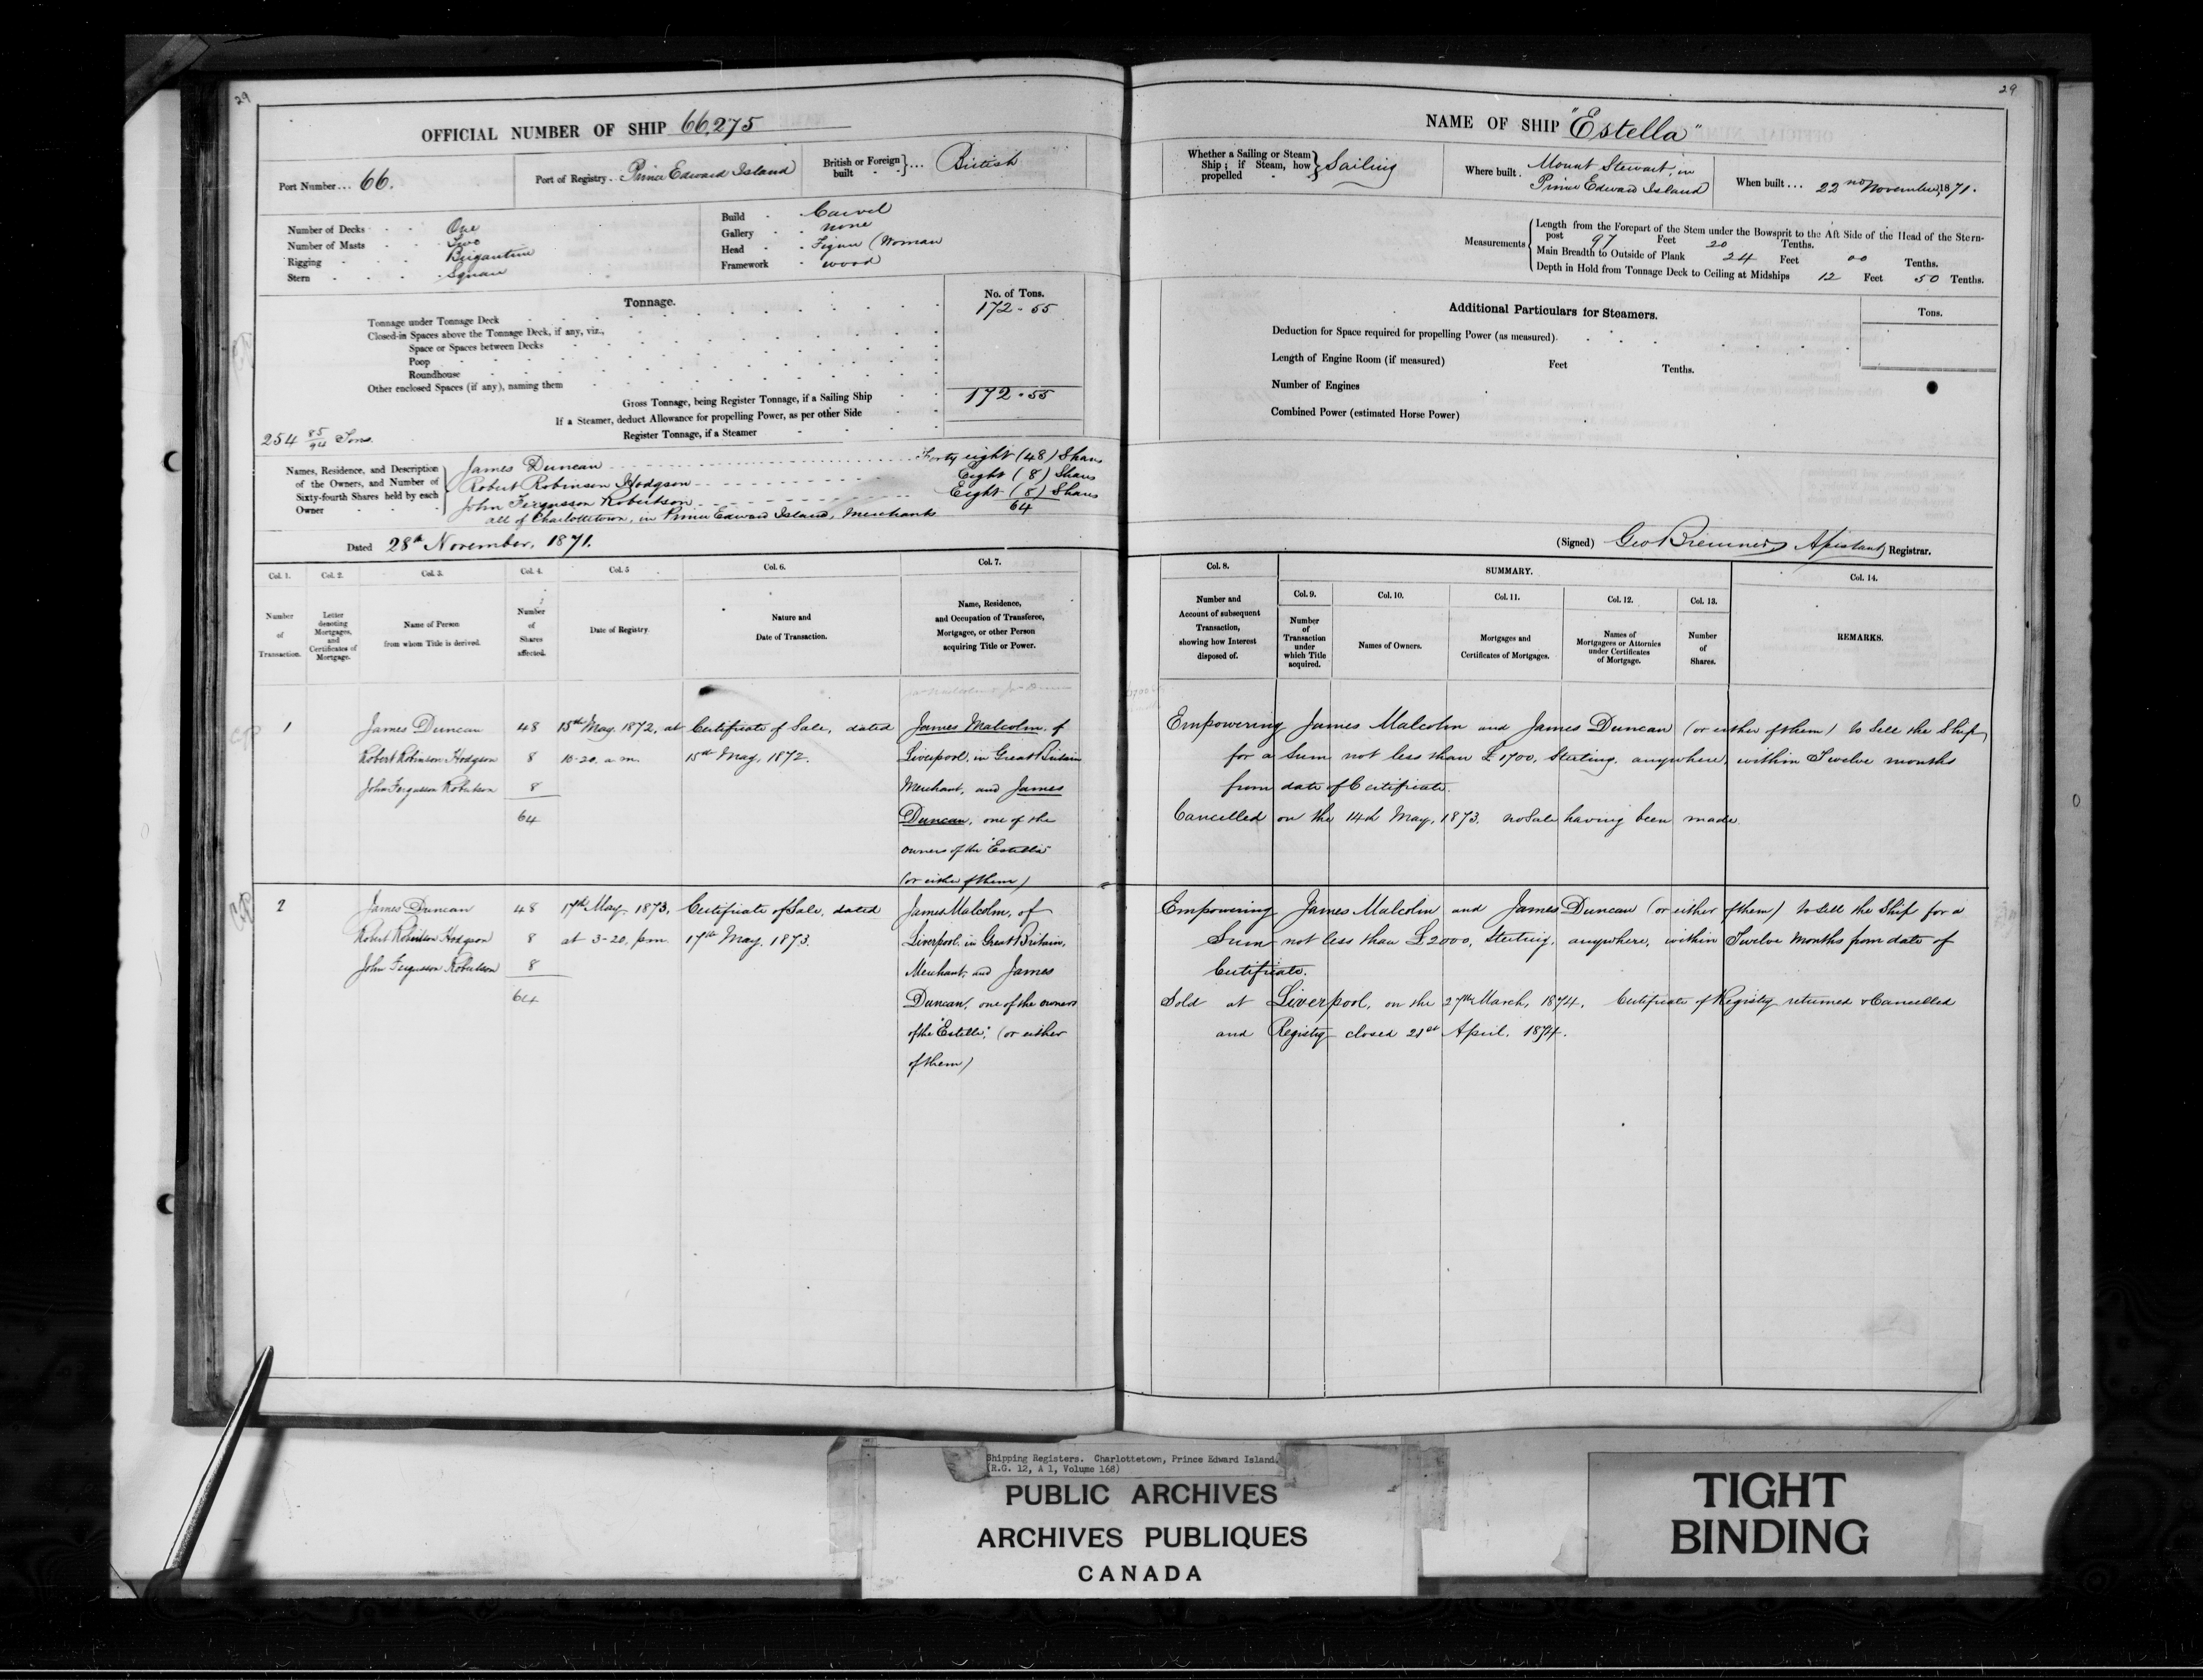 29
OFFICIAL NUMBER OF SHIP 66,275
Port Number... 66.
Port of Registry. Prince Edward Island
British or Foreign built } ... British
Number of Decks - - One
Number of Masts - - Two
Rigging - - - Brigantine
Stern - - - Square
Build - Carvel
Gallery - none
Head - Figure (Woman
Framework - wood
Tonnage.
No. of Tons.
Tonnage under Tonnage Deck 172.55
Closed-in Spaces above the Tonnage Deck, if any, viz.,
Space or Spaces between Decks
Poop
Roundhouse
Other enclosed Spaces (if any), naming them
Gross Tonnage, being Register Tonnage, if a Sailing Ship 172.55
If a Steamer, deduct Allowance for propelling Power, as per other Side
Register Tonnage, if a Steamer
254 85/94 Tons.
Names, Residence, and Description of the Owners, and Number of Sixty-fourth Shares held by each Owner
James Duncan Forty eight (48) Shares
Robert Robinson Hodgson Eight (8) Shares
John Fergusson Robertson Eight (8) Shares
all of Charlottetown, in Prince Edward Island, Merchants 64
Dated 28th November, 1871.
Col. 1. Col. 2. Col. 3. Col. 4. Col. 5 Col. 6. Col. 7.
Number of Transaction.
Letter denoting Mortgages, and Certificates of Mortgage.
Name of Person from whom Title is derived.
Number of Shares affected.
Date of Registry.
Nature and Date of Transaction.
Name, Residence, and Occupation of Transferee, Mortgagee, or other Person acquiring Title or Power.
1 James Duncan 48 15th May 1872, at Certificate of Sale, dated James Malcolm, of
Robert Robinson Hodgson 8 10-20. a.m. 15th May, 1872. Liverpool, in Great Britain
John Fergusson Robertson 8 Merchant, and James
64 Duncan, one of the
owners of the "Estella"
(or either of them)
2 James Duncan 48 17th May, 1873, Certificate of Sale, dated James Malcolm, of
Robert Robinson Hodgson 8 at 3-20, p.m. 17th May, 1873. Liverpool, in Great Britain,
John Fergusson Robertson 8 Merchant, and James
64 Duncan, one of the owners
of the "Estella", (or either
of them)
29
NAME OF SHIP "Estella"
Whether a Sailing or Steam Ship; if Steam, how propelled } Sailing
Where built. Mount Stewart, in Prince Edward Island
When built... 22nd November, 1871.
Measurements
Length from the Forepart of the Stem under the Bowsprit to the Aft Side of the Head of the Stern-
post 97 Feet 20 Tenths.
Main Breadth to Outside of Plank 24 Feet 00 Tenths.
Depth in Hold from Tonnage Deck to Ceiling at Midships 12 Feet 50 Tenths.
Additional Particulars for Steamers.
Tons.
Deduction for Space required for propelling Power (as measured).
Length of Engine Room (if measured) Feet Tenths.
Number of Engines
Combined Power (estimated Horse Power)
(Signed) Geo Bremner, Assistant Registrar.
Col. 8. SUMMARY. Col. 14.
Col. 9. Col. 10. Col. 11. Col. 12. Col. 13.
Number and Account of subsequent Transaction, showing how Interest disposed of.
Number of Transaction under which Title acquired.
Names of Owners.
Mortgages and Certificates of Mortgages.
Names of Mortgagees or Attornies under Certificates of Mortgage.
Number of Shares.
REMARKS.
Empowering James Malcolm and James Duncan (or either of them) to Sell the Ship,
for a Sum not less than £1700, Sterling, anywhere, within Twelve months
from date of Certificate.
Cancelled on the 14th May, 1873. no Sale having been made
Empowering James Malcolm and James Duncan (or either of them) to Sell the Ship for a
Sum not less than £2000, Sterling, anywhere, within Twelve Months from date of
Certificate.
Sold at Liverpool, on the 27th March, 1874. Certificate of Registry returned & Cancelled
and Registry closed 21st April, 1874.
Shipping Registers. Charlottetown, Prince Edward Island.
(R.G. 12, A 1, Volume 168)
PUBLIC ARCHIVES
ARCHIVES PUBLIQUES
CANADA
TIGHT
BINDING